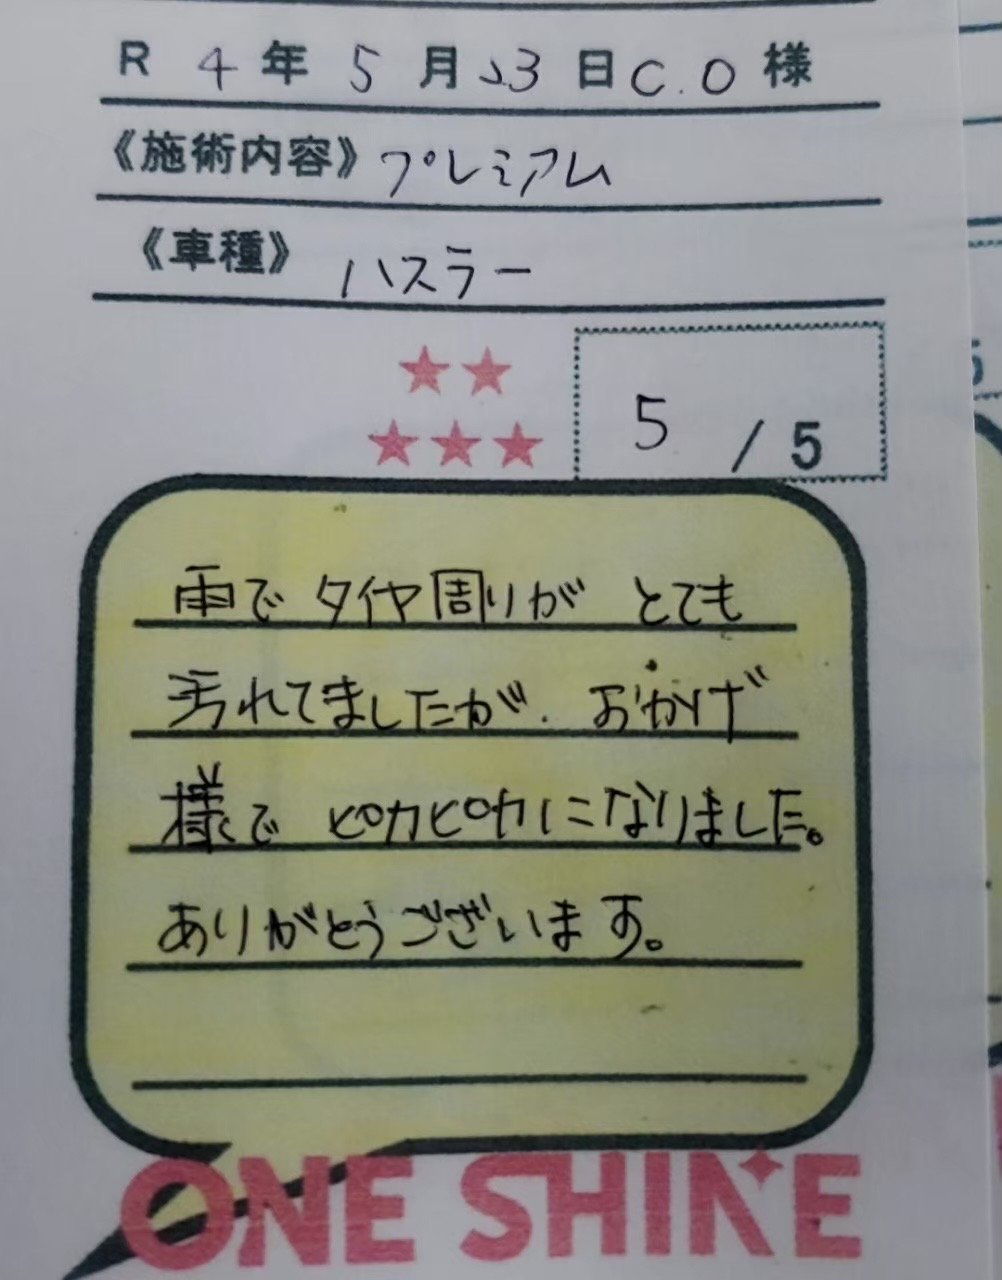 R 4年 5月23日 C.O様
《施術内容》プレミアム
《車種》ハスラー
5/5
雨でタイヤ周りが とても
汚れてましたが、おかげ
様で ピカピカになりました。
ありがとうございます。
ONE SHINE